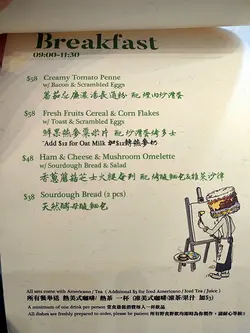 Breakfast
09:00-11:30
$58 Creamy Tomato Penne
w/ Bacon & Scrambled Eggs
蕃茄忌廉濃湯長通粉 配煙肉炒滑蛋
$58 Fresh Fruits Cereal & Corn Flakes
w/ Toast & Scrambled Eggs
鮮果燕麥粟米片 配炒滑蛋烤多士
*Add $12 for Oat Milk 加$12轉燕麥奶
$48 Ham & Cheese & Mushroom Omelette
w/ Sourdough Bread & Salad
香蔥蘑菇芝士火腿奄列 配酸麵包及雜菜沙律
$38 Sourdough Bread (2 pcs)
天然酵母酸麵包
All sets come with Americano / Tea ( Additional $3 for Iced Americano / Iced Tea / Juice )
所有餐單送 熱美式咖啡/ 熱茶 一杯 (凍美式咖啡/凍茶/果汁 加$3)
A minimum of one drink per person 堂食最低消費每人一杯飲品
All dishes are freshly prepared to order, please be patient